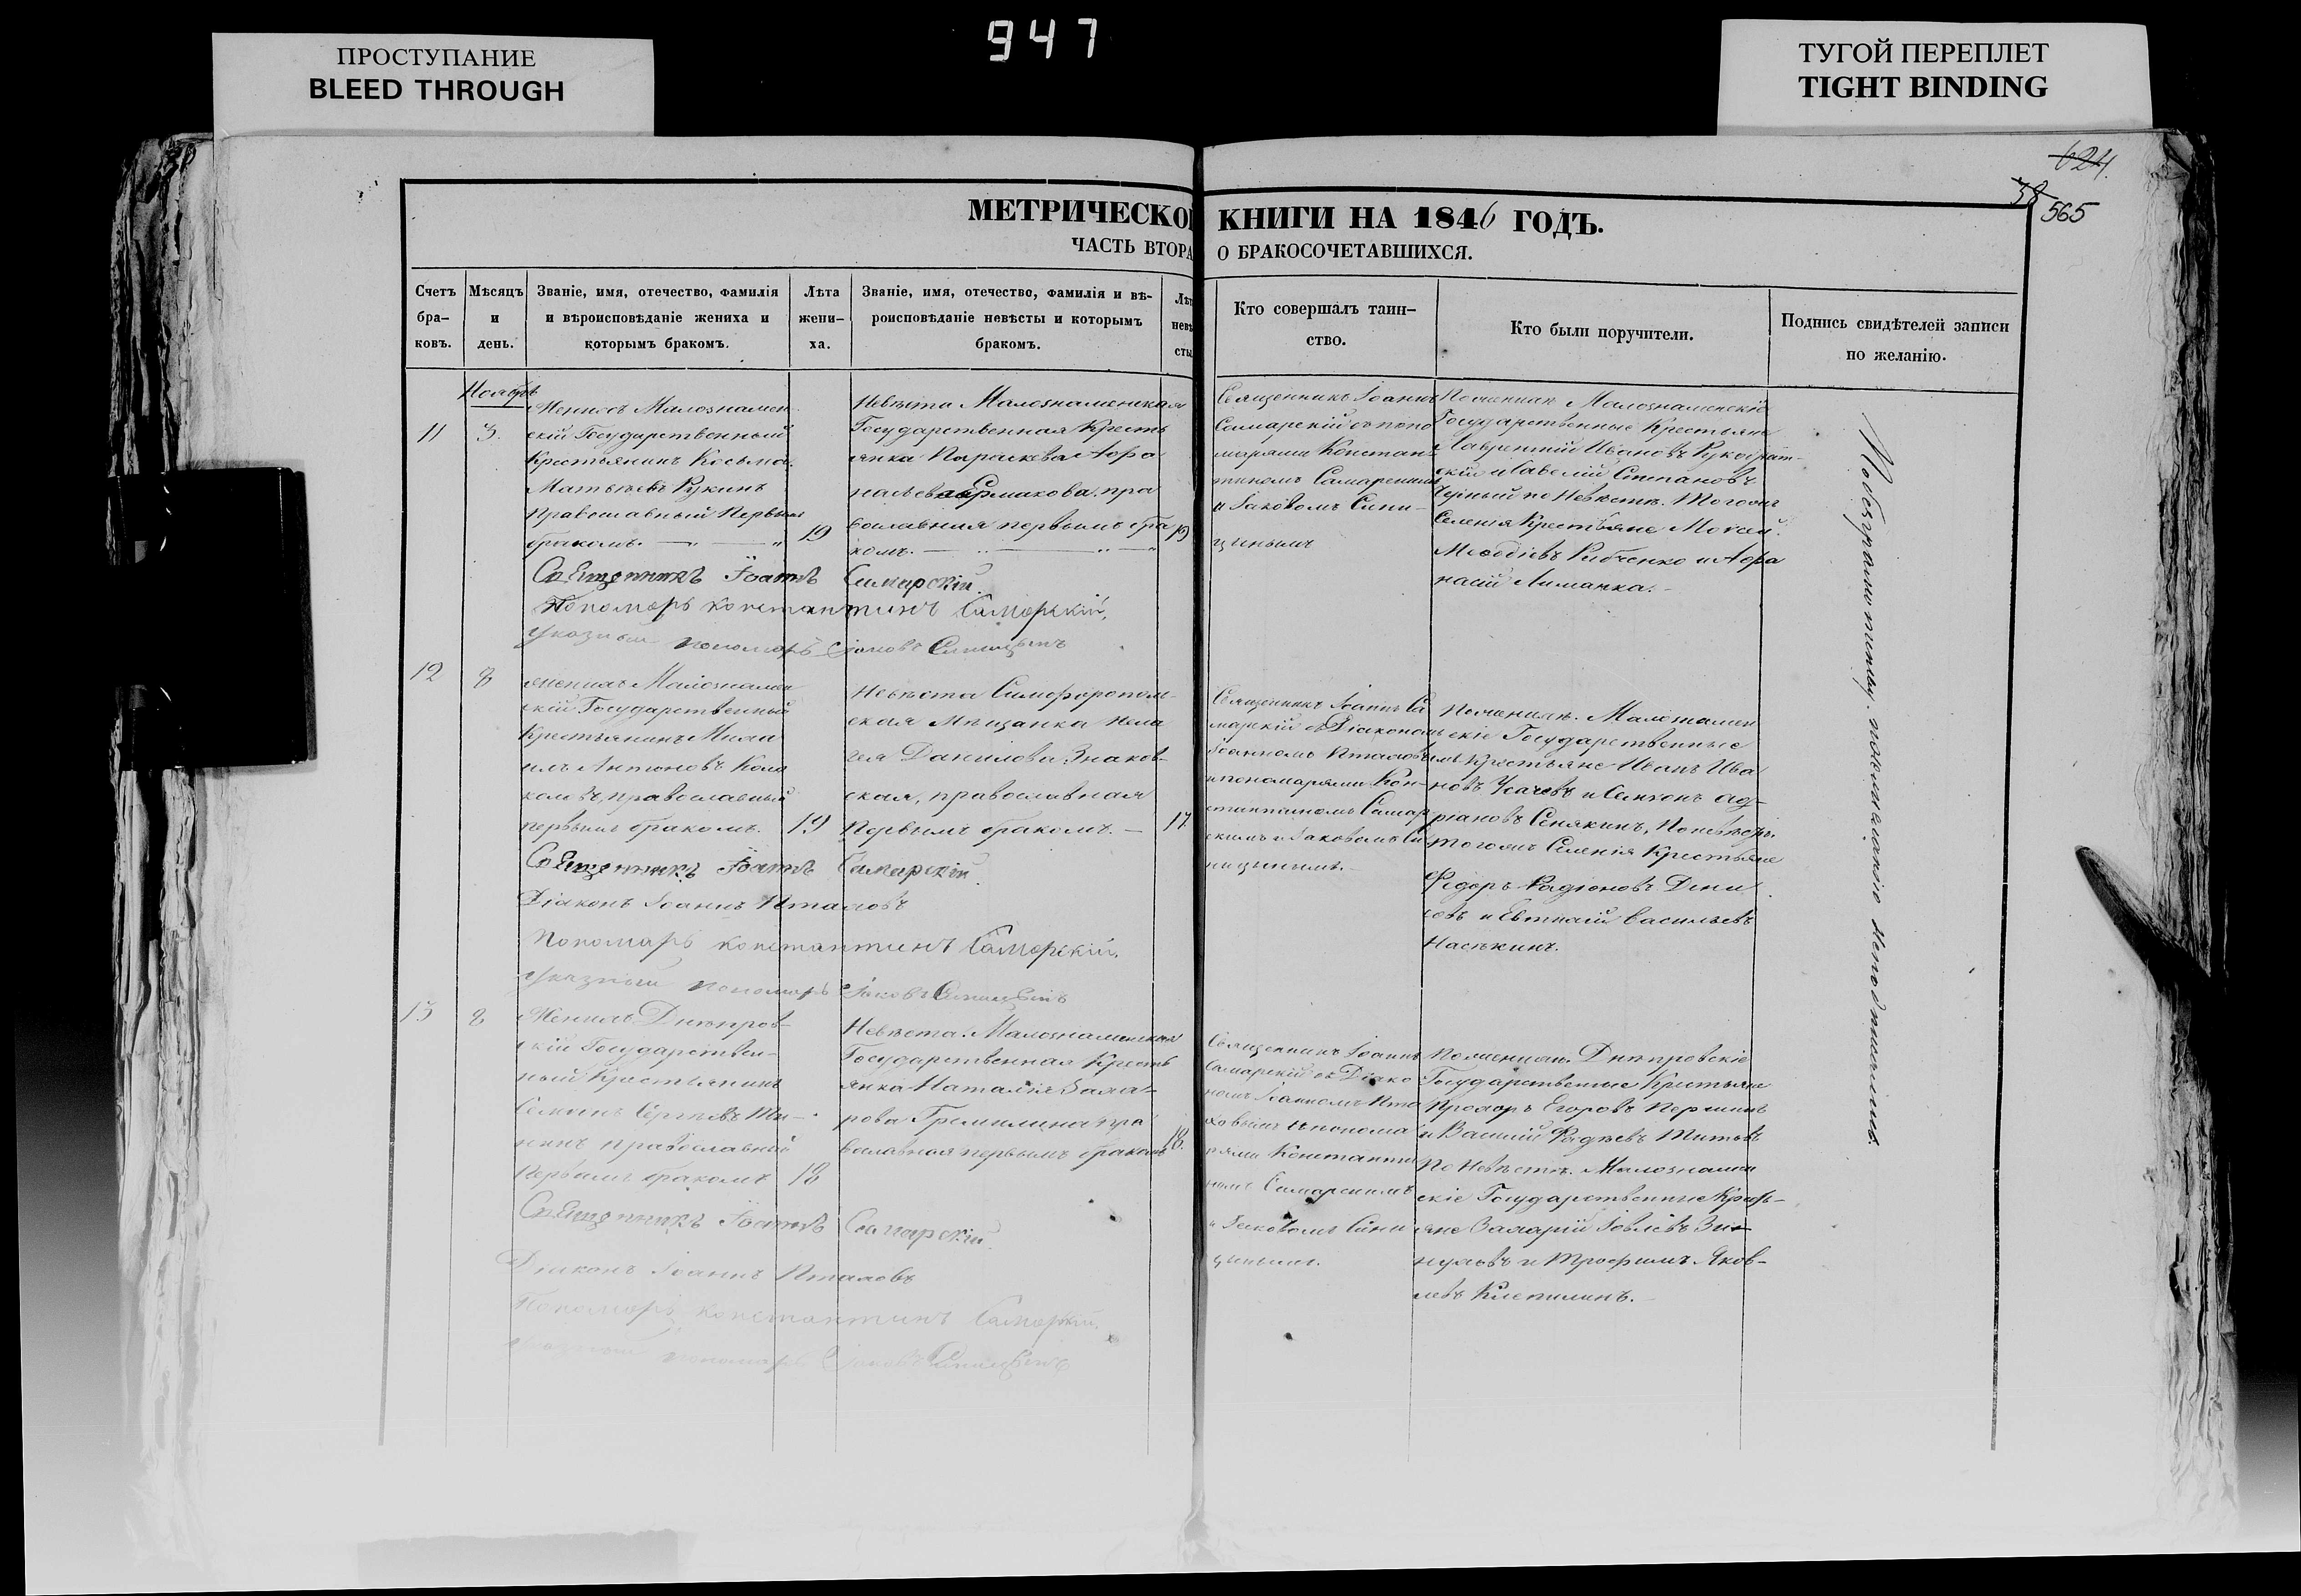 947
ПРОСТУПАНИЕ
BLEED THROUGH
ТУГОЙ ПЕРЕПЛЕТ
TIGHT BINDING
624.
38
565
МЕТРИЧЕСКО
КНИГИ НА 1846 ГОДЪ.
ЧАСТЬ ВТОРА
О БРАКОСОЧЕТАВШИХСЯ.
Счетъ бра-
ковъ.
Мѣсяцъ
и
день.
Званіе, имя, отечество, фамилія
и вѣроисповѣданіе жениха и
которымъ бракомъ.
Лѣта
жени-
ха.
Званіе, имя, отечество, фамилія и вѣ-
роисповѣданіе невѣсты и которымъ
бракомъ.
Лѣт
невѣ
сты
Кто совершалъ таин-
ство.
Кто были поручители.
Подпись свидѣтелей записи
по желанію.
Ноябрь
11
3.
Женихъ Малознамен
скій Государственный
Крестьянинъ Косьма
Матвѣевъ Рукинъ
Православный Первымъ
бракомъ.
19
Невѣста Малознаменская
Государственная Кресть
янка Параскева Афа
насьева Ермакова пра
вославная первымъ бра
комъ.
19
Священникъ Іоаннъ
Самарскій съ поно
марями Констан
тиномъ Самарскимъ
и Іаковомъ Сини-
цынымъ
По женихѣ Малознаменскіе
Государственные Крестьяне
Лаврентій Ивановъ
скій и Савелій Степановъ
по Невѣстѣ. Тогожъ
Селенія Крестьяне Мокей
Меѳодіевъ Рибченко и Афа
насій Лиманка.
Священникъ Іоаннъ Самарскій.
Пономарь Константинъ Саморскій.
Указный пономарь Іаковъ Синицынъ
12
8
Женихъ Малознамен
скій Государственный
Крестьянинъ Миха
илъ Антоновъ Кома
ковъ, православный
первымъ бракомъ.
19
Невѣста Симферополь-
ская Мѣщанка Пела
гея Данилова Знаков-
ская, православная
Первымъ бракомъ.
17
Священникъ Іоаннъ Са
марскій съ Діакономъ
Іоанномъ Птаховымъ
и пономарями Кон-
стантиномъ Самар
скимъ и Іаковомъ Си
ницынымъ.
По женихѣ. Малознамен
скіе Государственные
Крестьяне Иванъ Ива
новъ Усачевъ и Симеонъ Ад-
ріановъ Сенякинъ, По невѣстѣ.
тогожъ Селенія Крестьяне
Федоръ Радіоновъ Дени
совъ и Евтихій Васильевъ
Насѣкинъ.
Священникъ Іоаннъ Самарскій.
Діаконъ Іоаннъ Птаховъ
Пономарь Константинъ Саморскій.
Указный пономарь Іаковъ Синицынъ
13
8
Женихъ Днѣпров-
скій Государствен-
ный Крестьянинъ
Семенъ Сергѣевъ
православный
Первымъ бракомъ
18
Невѣста. Малознаменская
Государственная Кресть
янка Наталія Заха-
рова Гремилина пра
вославная первымъ бракомъ
18.
Священникъ Іоаннъ
Самарскій съ Діако
номъ Іоанномъ Пта
ховымъ и понома
рями Константи
номъ Самарскимъ
и Іаковомъ Сини
цынымъ.
По женихѣ. Днѣпровскіе
Государственные Крестьяне
Прохоръ Егоровъ Першинъ
и Василій Фадѣевъ Титовъ
По Невѣстѣ. Малознамен
скіе Государственные Кресть-
яне Захарій Іовлевъ Зи-
нуховъ и Трофимъ Яков-
левъ Клепилинъ.
Священникъ Іоаннъ Самарскій.
Діаконъ Іоаннъ Птаховъ
Пономарь Константинъ Саморскій.
Указный пономарь Іаковъ Синицынъ